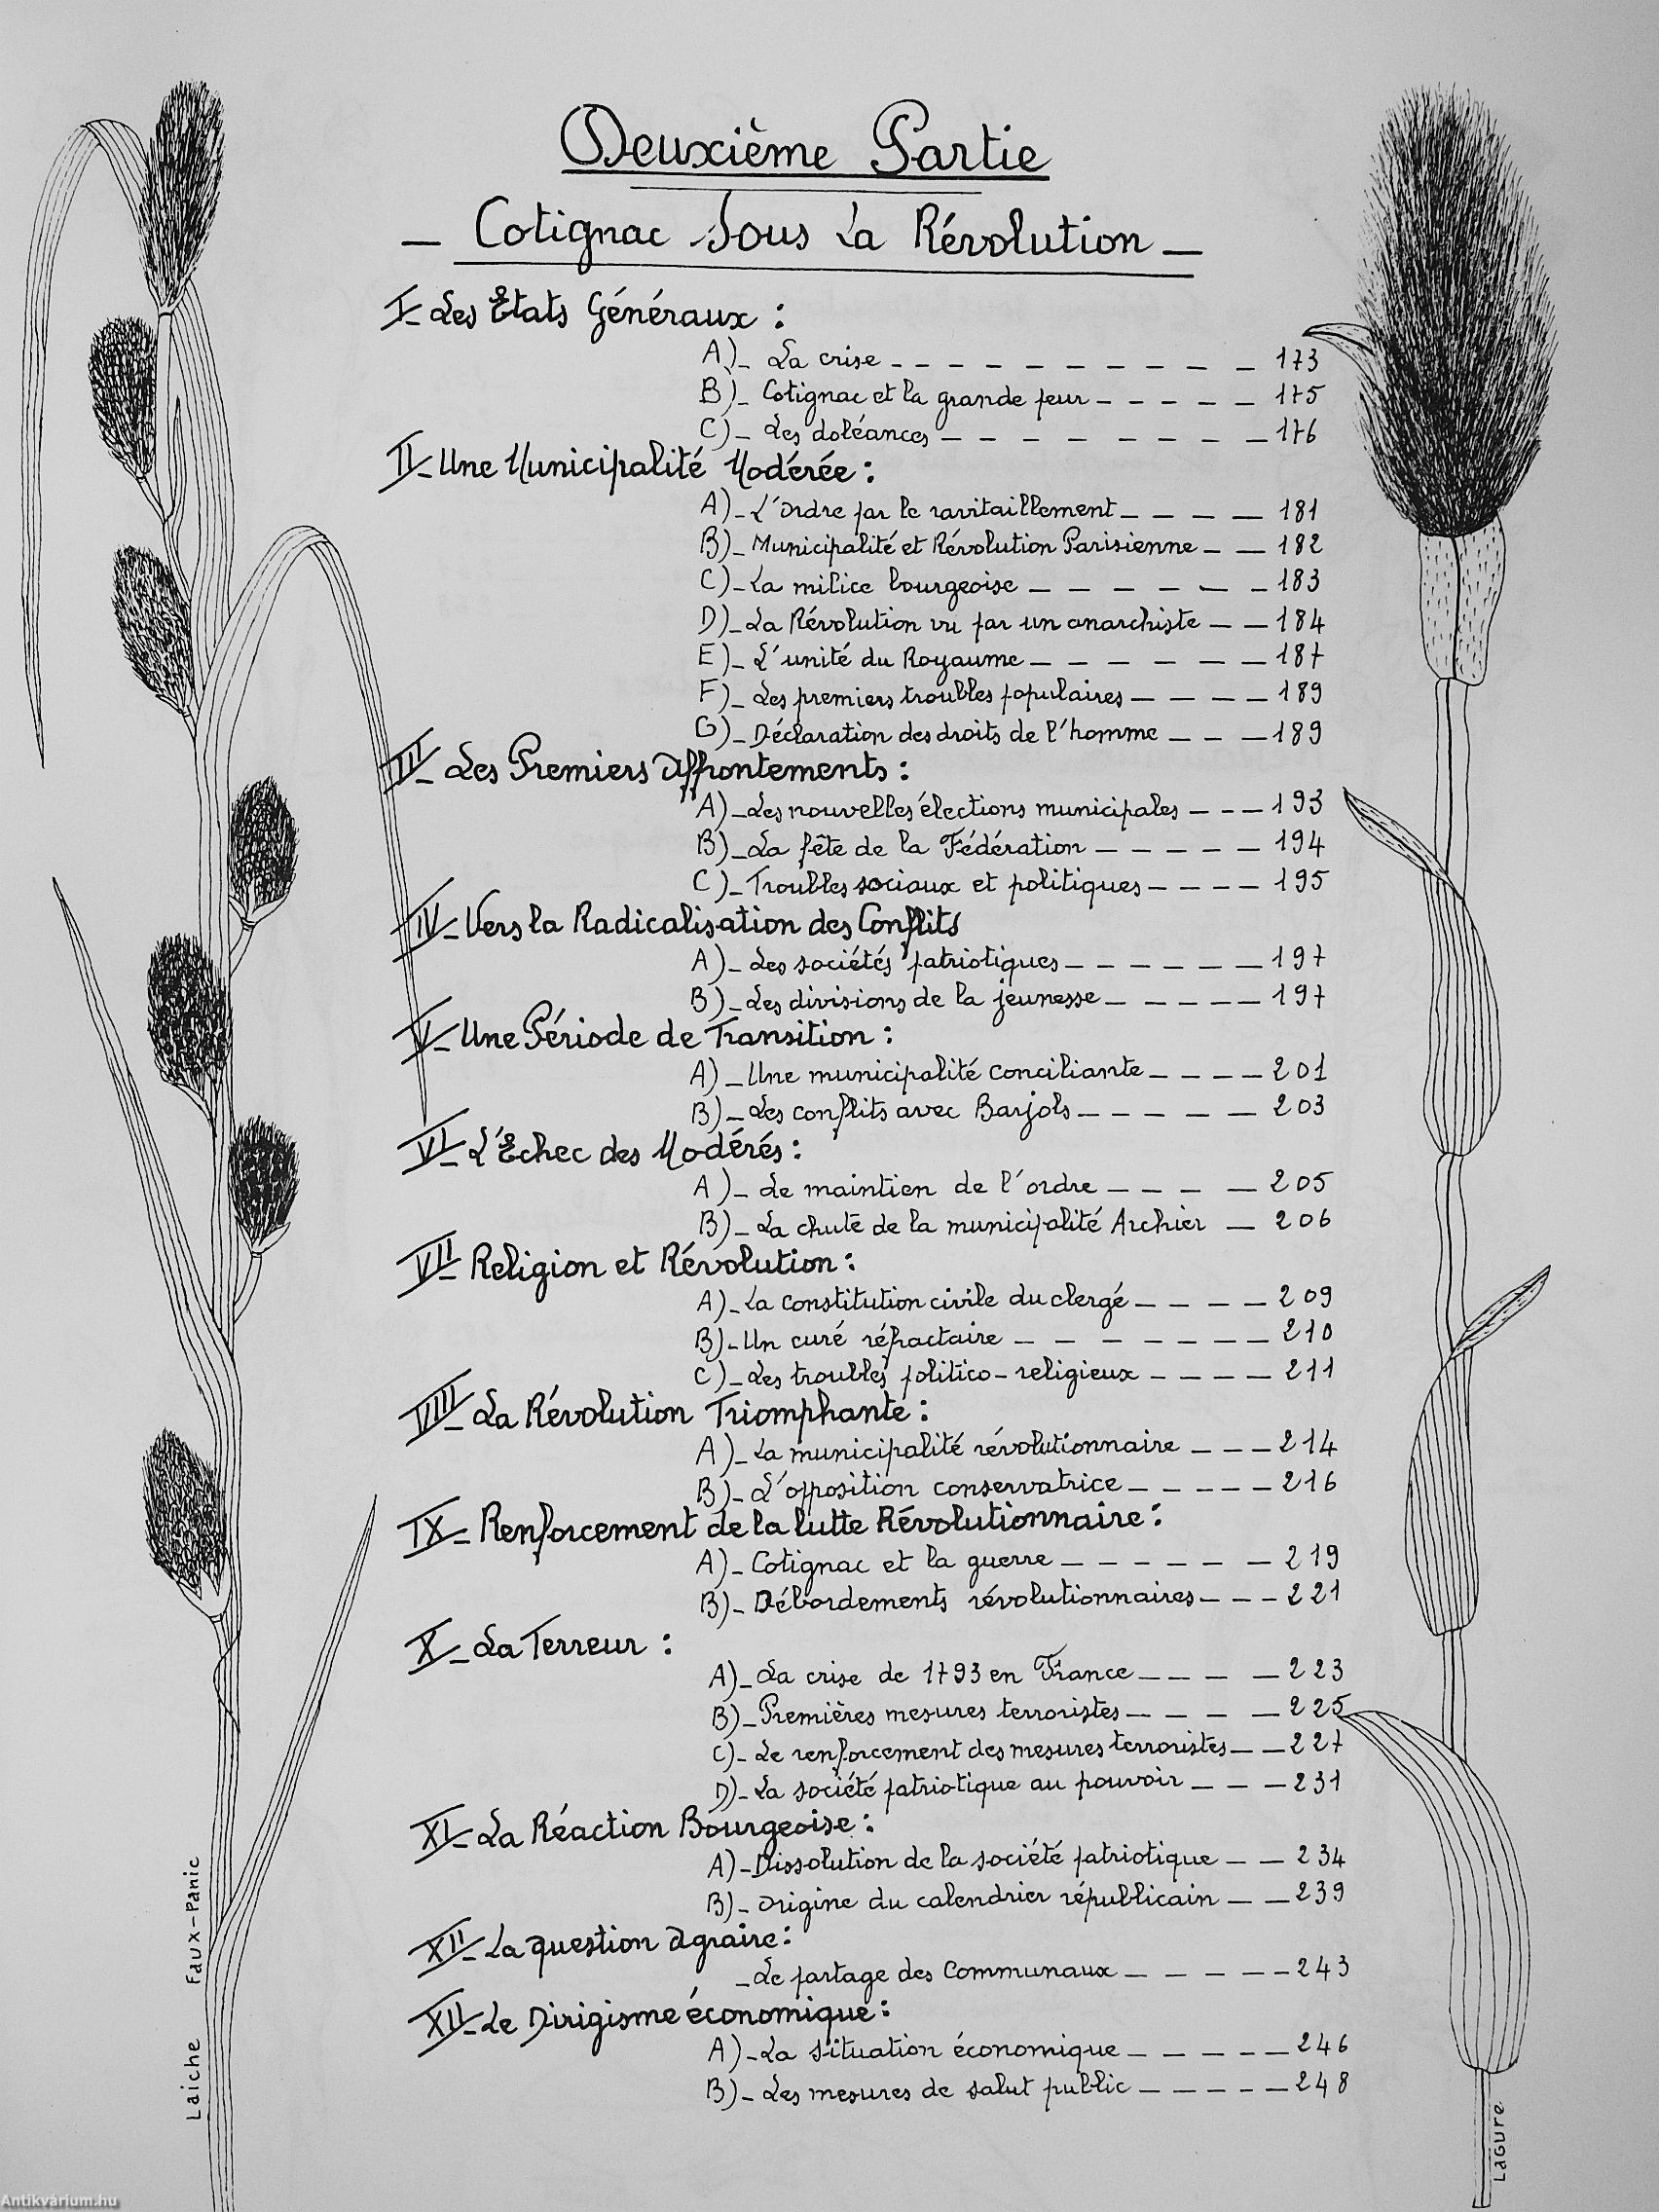 Deuxième Partie
_ Cotignac Sous La Révolution _
I_ Les Etats Généraux :
A)_ La crise _ _ _ _ _ _ _ _ _ _ _ 173
B)_ Cotignac et la grande peur _ _ _ _ _ 175
C)_ Les doléances _ _ _ _ _ _ _ _ _ 176
II_ Une Municipalité Modérée :
A)_ L'Ordre par le ravitaillement _ _ _ _ 181
B)_ Municipalité et Révolution Parisienne _ _ 182
C)_ La milice bourgeoise _ _ _ _ _ _ _ 183
D)_ La Révolution vu par un anarchiste _ _ 184
E)_ L'unité du Royaume _ _ _ _ _ _ _ 187
F)_ Les premiers troubles populaires _ _ _ _ 189
G)_ Déclaration des droits de l'homme _ _ _ 189
III_ Les Premiers Affrontements :
A)_ Les nouvelles élections municipales _ _ _ 193
B)_ La fête de la Fédération _ _ _ _ _ 194
C)_ Troubles sociaux et politiques _ _ _ _ 195
IV_ Vers la Radicalisation des Conflits
A)_ Les sociétés patriotiques _ _ _ _ _ _ 197
B)_ Les divisions de la jeunesse _ _ _ _ _ 197
V_ Une Période de Transition :
A)_ Une municipalité conciliante _ _ _ _ 201
B)_ Les conflits avec Barjols _ _ _ _ _ 203
VI_ L'Echec des Modérés :
A)_ Le maintien de l'ordre _ _ _ _ 205
B)_ La chute de la municipalité Archier _ 206
VII_ Religion et Révolution :
A)_ La constitution civile du clergé _ _ _ _ 209
B)_ Un curé réfractaire _ _ _ _ _ _ _ 210
C)_ Les troubles politico-religieux _ _ _ _ 211
VIII_ La Révolution Triomphante :
A)_ La municipalité révolutionnaire _ _ _ 214
B)_ L'opposition conservatrice _ _ _ _ _ 216
IX_ Renforcement de la lutte Révolutionnaire :
A)_ Cotignac et la guerre _ _ _ _ _ _ 219
B)_ Débordements révolutionnaires _ _ _ 221
X_ La Terreur :
A)_ La crise de 1793 en France _ _ _ _ 223
B)_ Premières mesures terroristes _ _ _ _ 225
C)_ Le renforcement des mesures terroristes _ _ 227
D)_ La société patriotique au pouvoir _ _ _ 231
XI_ La Réaction Bourgeoise :
A)_ Dissolution de la société patriotique _ _ 234
B)_ Origine du calendrier républicain _ _ 239
XII_ La question Agraire :
_ Le partage des Communaux _ _ _ _ _ 243
XII_ Le Dirigisme économique :
A)_ La situation économique _ _ _ _ _ 246
B)_ Les mesures de salut public _ _ _ _ _ 248
Laiche Faux-Panic
LAGURE
Antikvárium.hu